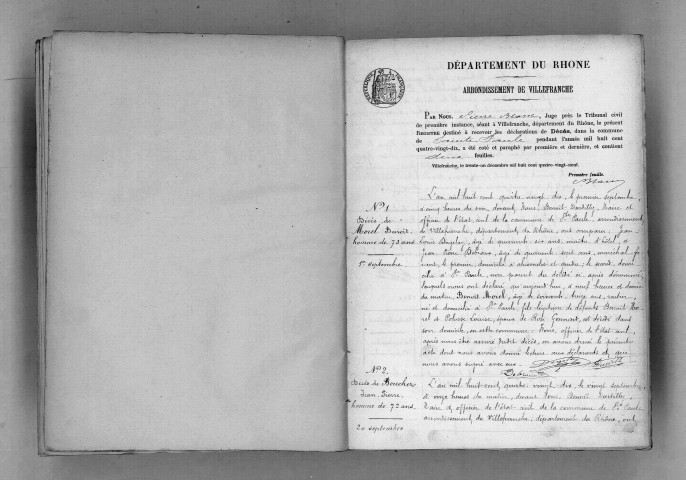 DÉPARTEMENT DU RHONE
ARRONDISSEMENT DE VILLEFRANCHE
PAR NOUS, Juge près le Tribunal civil
de première instance, séant à Villefranche, département du Rhône, le présent
REGISTRE destiné à recevoir les déclarations de Décès, dans la commune
de Sainte Paule pendant l'année mil huit cent
quatre-vingt-dix, a été coté et paraphé par première et dernière, et contient
feuilles.
Villefranche, le trente-un décembre mil huit cent quatre-vingt-neuf.
Première feuille.
N° 1
Décès de
Morel Benoit
homme de 73 ans
1er septembre
L'an mil huit cent quatre vingt dix, le premier septembre,
à cinq heures du soir, devant Nous, Benoit, Maire et
officier de l'état civil de la commune de Ste Paule, arrondissement
de Villefranche, département du Rhône, ont comparu: Jean
Louis, âgé de quarante six ans, maître d'hôtel, et
Jean, âgé de quarante sept ans, maréchal
le premier, domicilié à et le second
à Ste Paule, non parent du décédé ci après dénommé
lesquels nous ont déclaré qu'aujourd'hui, à neuf heures et demie
du matin, Benoit Morel, âgé de soixante treize ans,
né et domicilié à Ste Paule, fils légitime de défunts Benoit Mo-
rel et Louise, époux de Rose, est décédé dans
son domicile, en cette commune. Nous, officier de l'état civil,
après nous être assuré dudit décès, en avons dressé le présent
acte dont nous avons donné lecture aux déclarants et que
nous avons signé avec eux.
N° 2
Décès de Boucher
Jean Pierre,
homme de 72 ans
20 septembre
L'an mil huit cent, quatre vingt dix, le vingt septembre,
à onze heures du matin, devant Nous, Benoit,
Maire et officier de l'état civil de la commune de Ste Paule
arrondissement de Villefranche, département du Rhône, ont